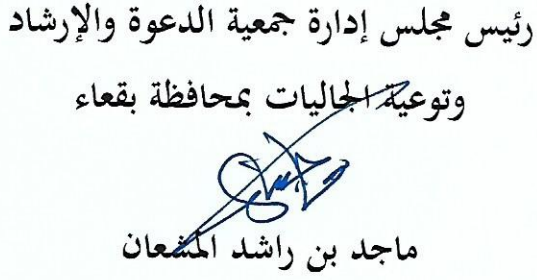 رئيس مجلس إدارة جمعية الدعوة والإرشاد
وتوعية الجاليات بمحافظة بقعاء
ماجد بن راشد المشعان